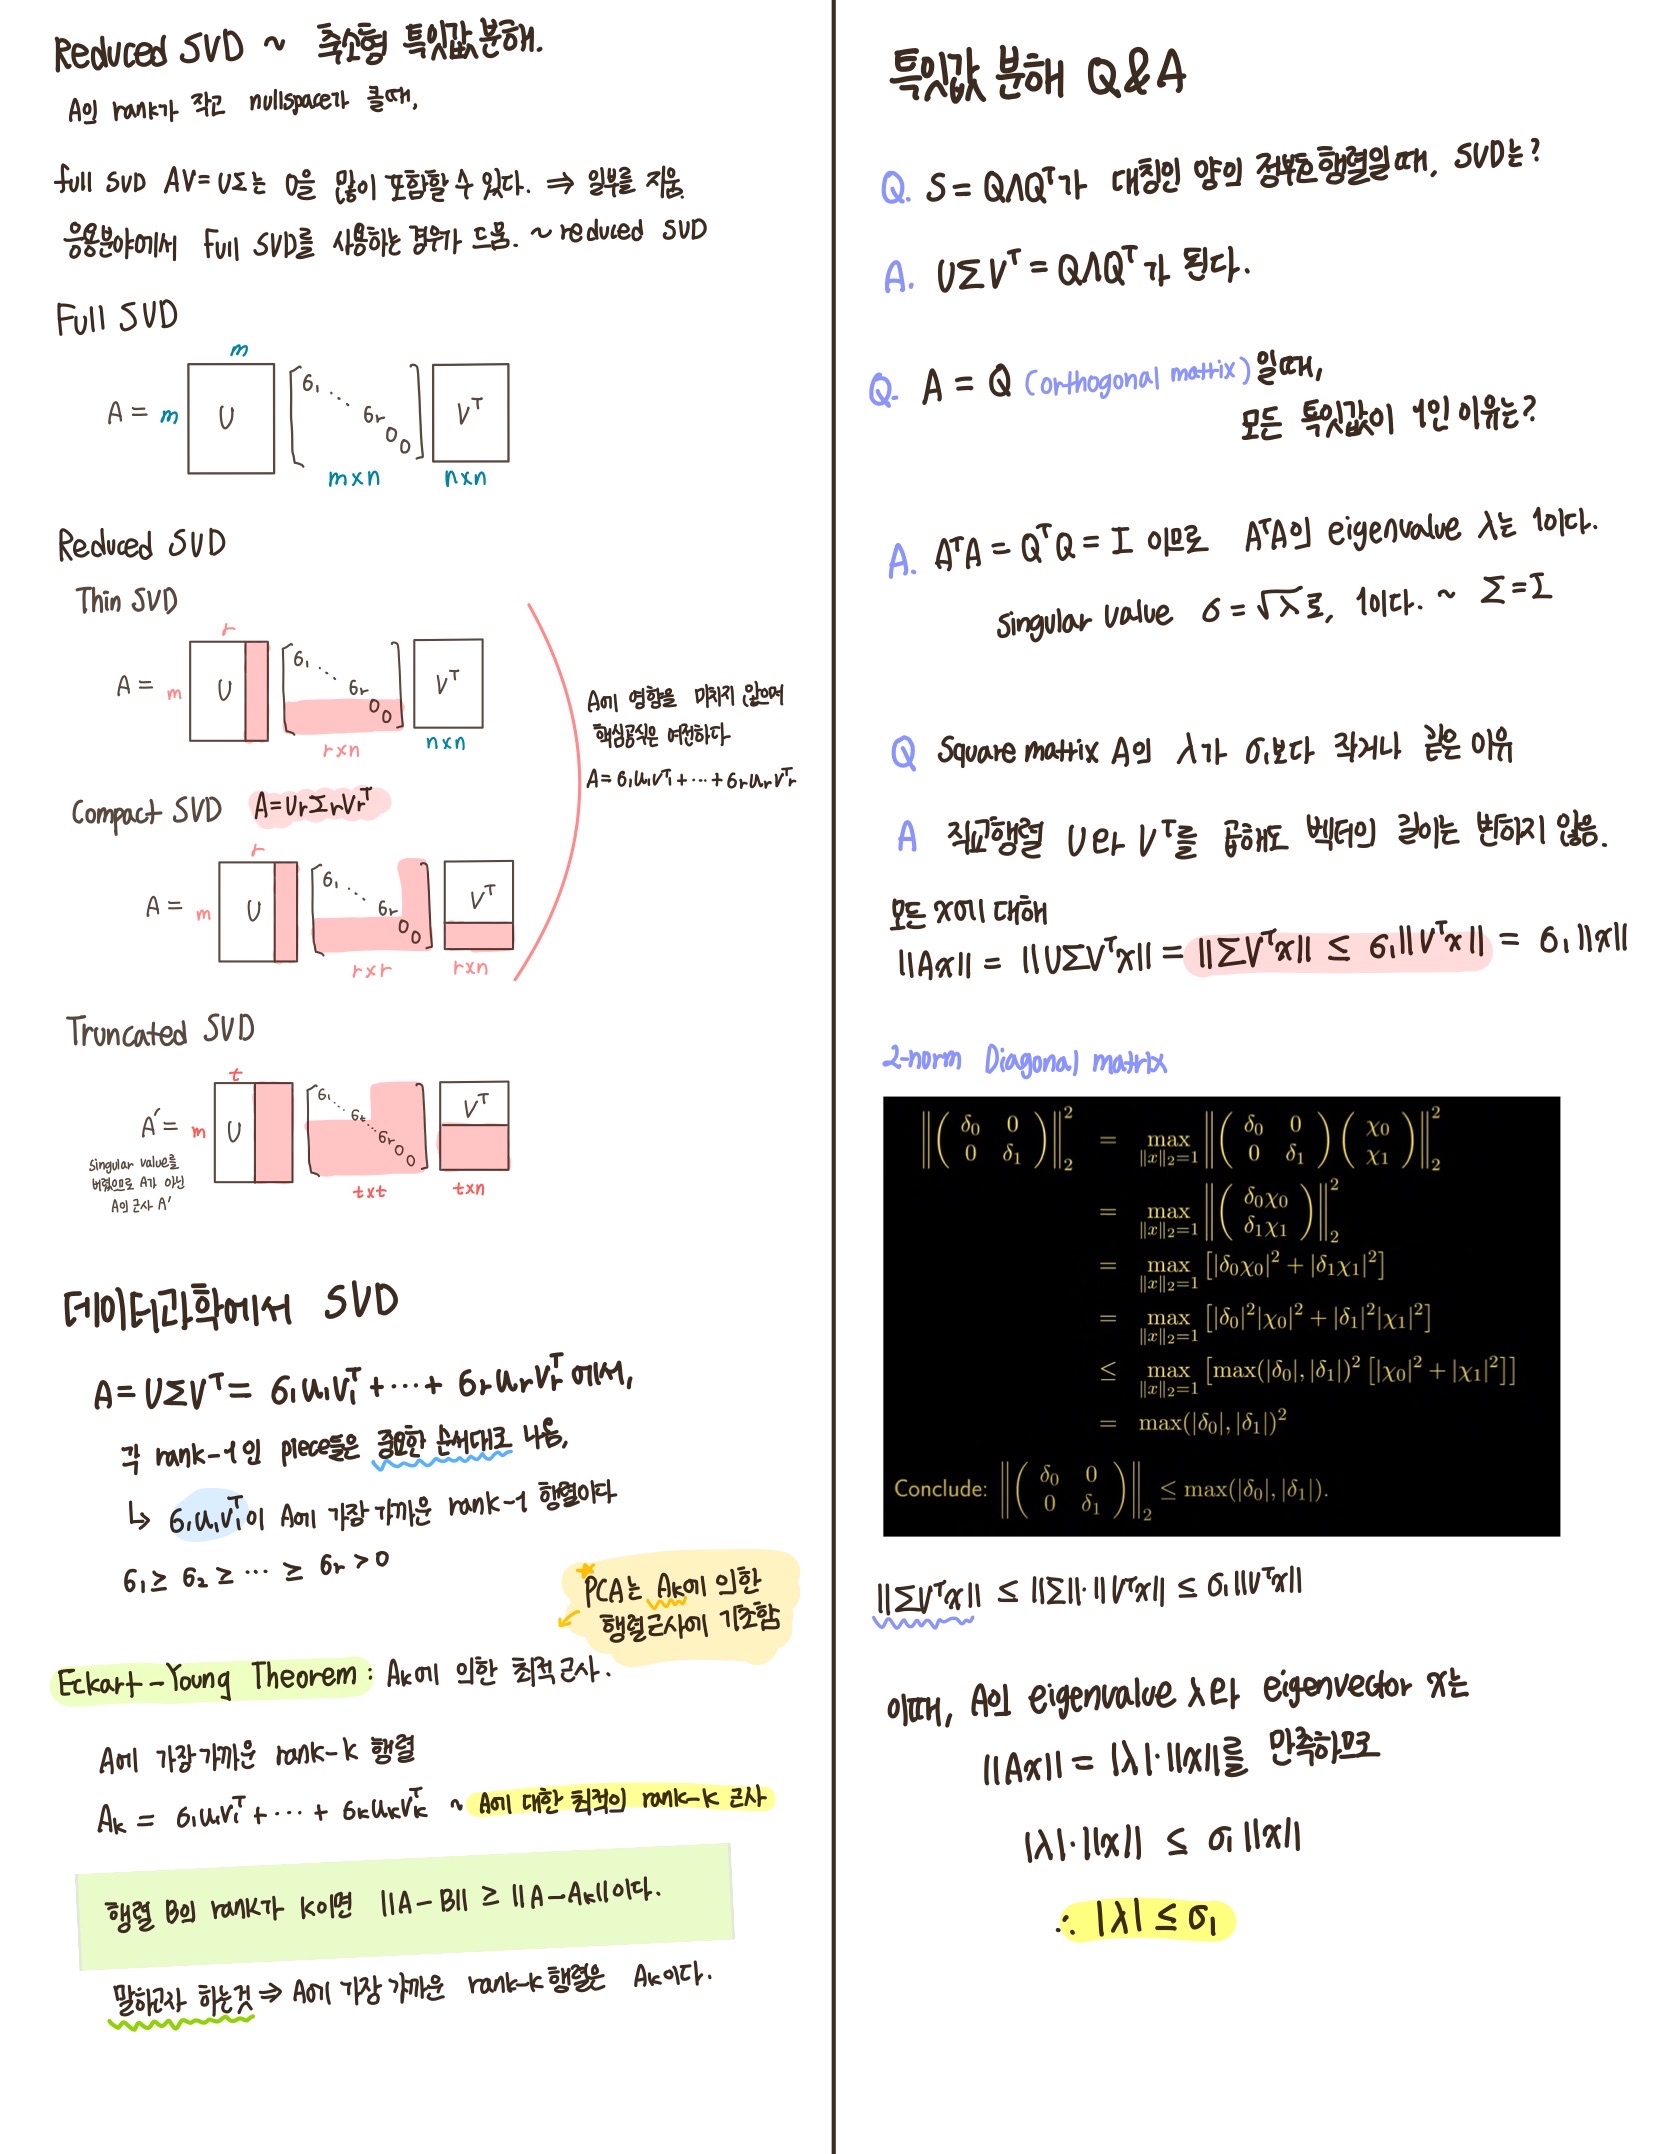 Reduced SVD ~ 축소형 특잇값 분해.
A의 rank가 작고 nullspace가 클때,
full SVD AV=UΣ는 0을 많이 포함할 수 있다. ⇒ 일부를 지움.
응용분야에서 Full SVD를 사용하는 경우가 드뭄. ~ reduced SVD
Full SVD
m
A = m U [σ₁ ⋱ σr 0 0] Vᵀ
m×n n×n
Reduced SVD
Thin SVD
r
A = m U [σ₁ ⋱ σr 0 0] Vᵀ
r×n n×n
A에 영향을 미치지 않으며
핵심공식은 여전하다
A = σ₁u₁v₁ᵀ + ⋯ + σrurvrᵀ
Compact SVD A=UrΣrVrᵀ
r
A = m U [σ₁ ⋱ σr 0 0] Vᵀ
r×r r×n
Truncated SVD
t
A′ = m U [σ₁ ⋱ σt ⋱ σr 0 0] Vᵀ
singular value를
버렸으므로 A가 아닌
A의 근사 A′
t×t t×n
데이터과학에서 SVD
A = UΣVᵀ = σ₁u₁v₁ᵀ + ⋯ + σrurvrᵀ 에서,
각 rank-1인 piece들은 중요한 순서대로 나옴,
↳ σ₁u₁v₁ᵀ이 A에 가장 가까운 rank-1 행렬이다
σ₁ ≥ σ₂ ≥ ⋯ ≥ σr > 0
★ PCA는 Ak에 의한
행렬근사에 기초함
Eckart-Young Theorem : Ak에 의한 최적 근사.
A에 가장 가까운 rank-k 행렬
Ak = σ₁u₁v₁ᵀ + ⋯ + σkukvkᵀ ~ A에 대한 최적의 rank-k 근사
행렬 B의 rank가 k이면 ||A-B|| ≥ ||A-Ak||이다.
말하고자 하는것 ⇒ A에 가장 가까운 rank-k 행렬은 Ak이다.
특잇값 분해 Q&A
Q. S = QΛQᵀ가 대칭인 양의 정부호행렬일때, SVD는?
A. UΣVᵀ = QΛQᵀ가 된다.
Q. A = Q (orthogonal matrix) 일때,
모든 특잇값이 1인 이유는?
A. AᵀA = QᵀQ = I 이므로 AᵀA의 eigenvalue λ는 1이다.
singular value σ = √λ로, 1이다. ~ Σ=I
Q Square matrix A의 λ가 σ₁보다 작거나 같은 이유
A 직교행렬 U와 Vᵀ를 곱해도 벡터의 길이는 변하지 않음.
모든 x에 대해
||Ax|| = ||UΣVᵀx|| = ||ΣVᵀx|| ≤ σ₁||Vᵀx|| = σ₁||x||
2-norm Diagonal matrix
‖(δ₀ 0; 0 δ₁)‖₂² = max‖x‖₂=1 ‖(δ₀ 0; 0 δ₁)(χ₀; χ₁)‖₂²
= max‖x‖₂=1 ‖(δ₀χ₀; δ₁χ₁)‖₂²
= max‖x‖₂=1 [|δ₀χ₀|² + |δ₁χ₁|²]
= max‖x‖₂=1 [|δ₀|²|χ₀|² + |δ₁|²|χ₁|²]
≤ max‖x‖₂=1 [max(|δ₀|, |δ₁|)² [|χ₀|² + |χ₁|²]]
= max(|δ₀|, |δ₁|)²
Conclude: ‖(δ₀ 0; 0 δ₁)‖₂ ≤ max(|δ₀|, |δ₁|).
||ΣVᵀx|| ≤ ||Σ||·||Vᵀx|| ≤ σ₁||Vᵀx||
이때, A의 eigenvalue λ와 eigenvector x는
||Ax|| = |λ|·||x||를 만족하므로
|λ|·||x|| ≤ σ₁||x||
∴ |λ| ≤ σ₁